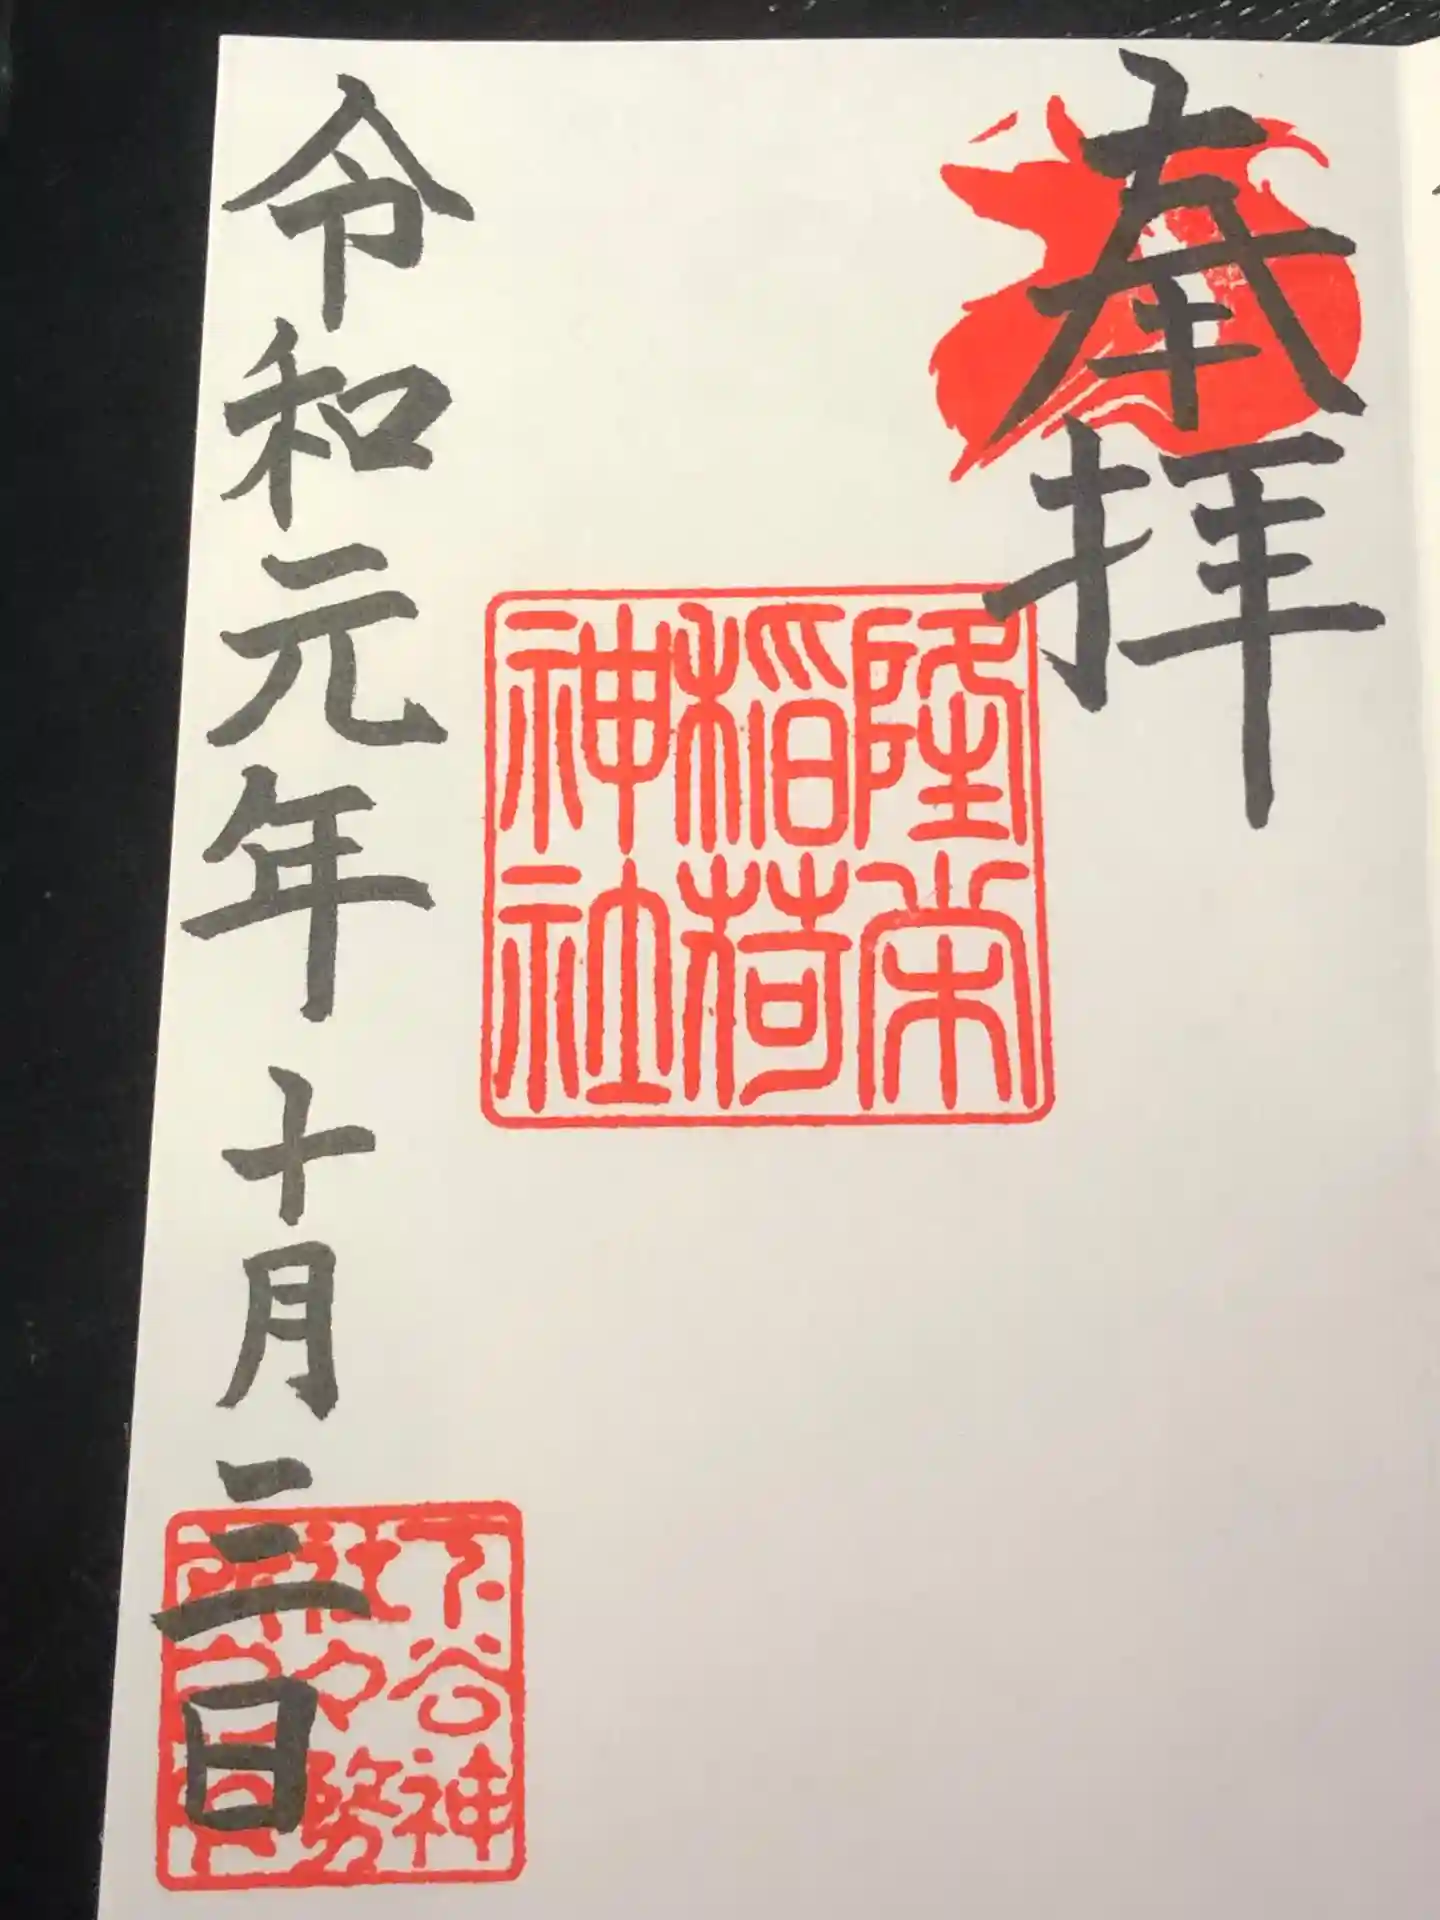 奉拝
隆栄
稲荷
神社
令和元年十月三日
下谷神
社々務
所之印